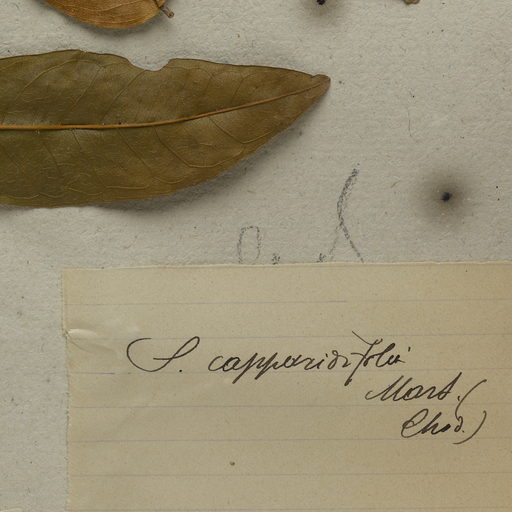 S. capparidifolia
Mart. (
Chod.)